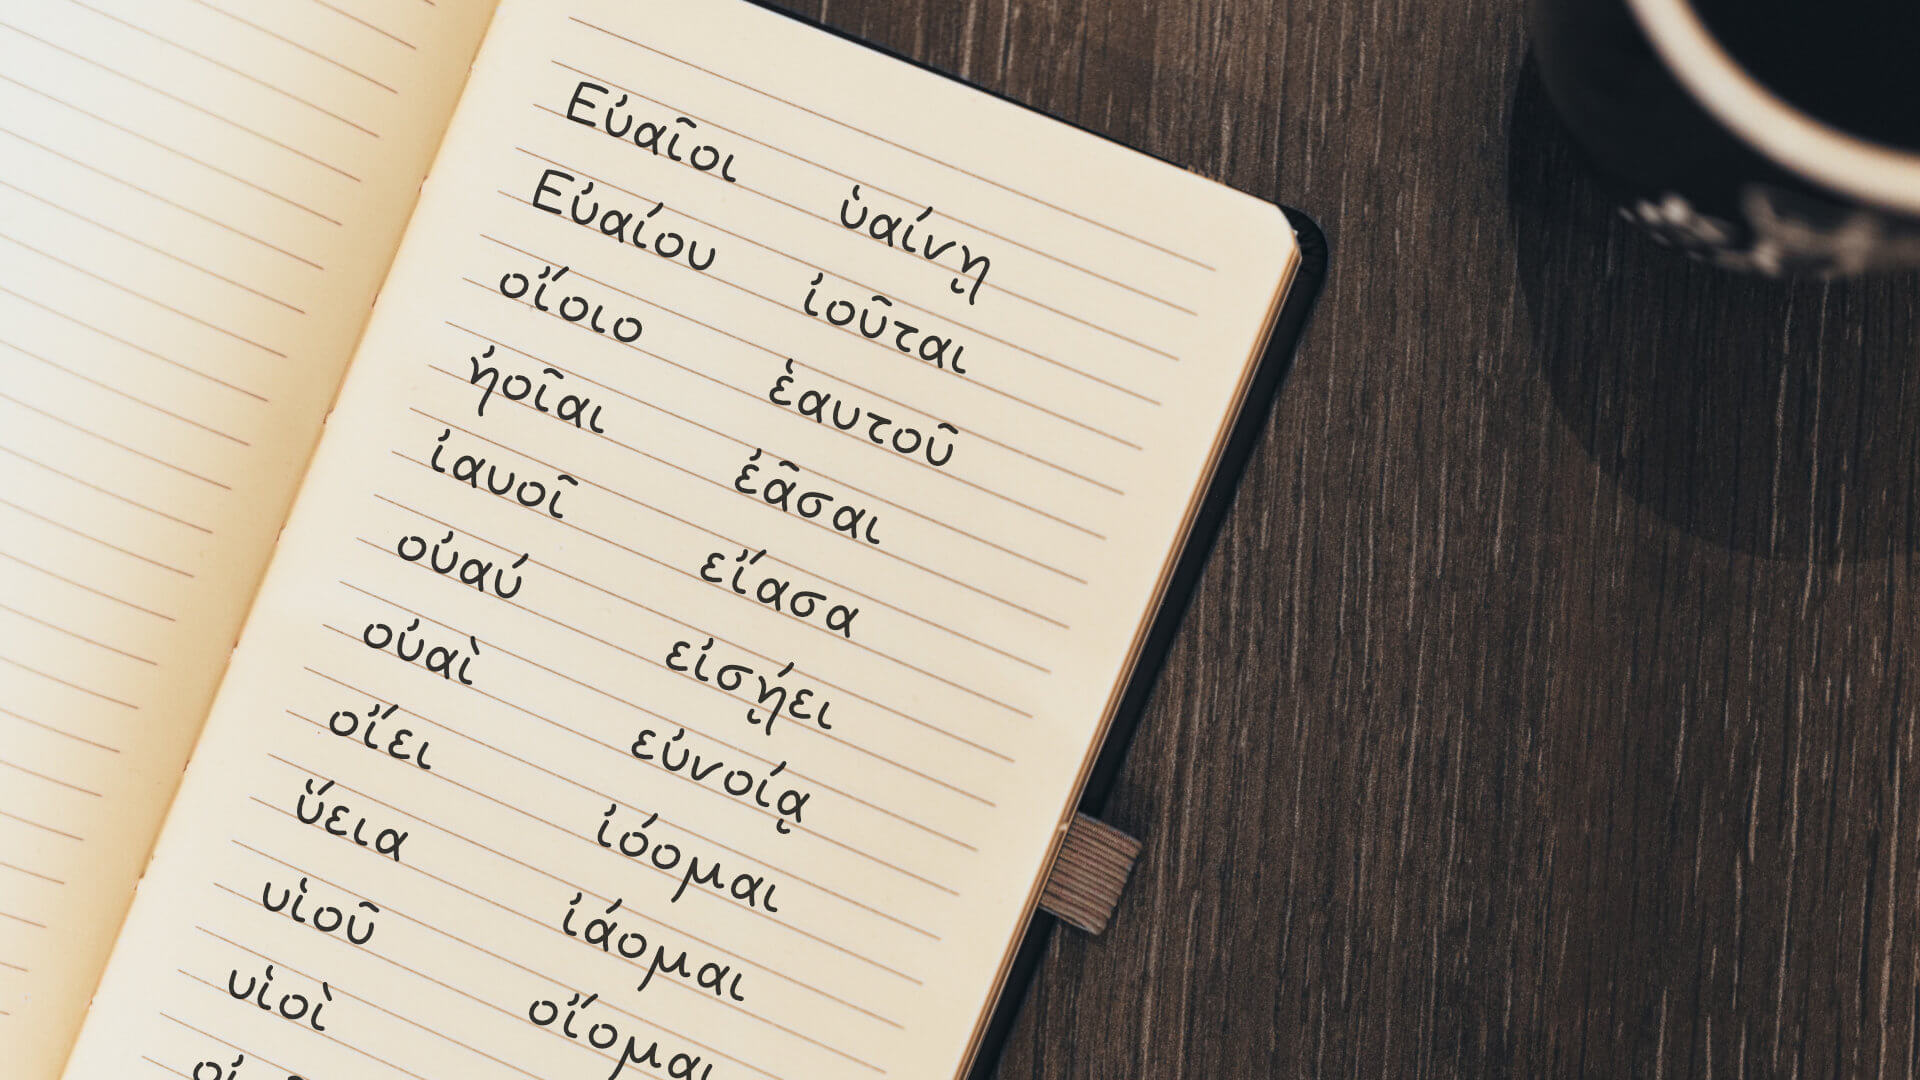 Εὐαῖοι ὑαίνῃ
Εὐαίου ἰοῦται
οἴοιο ἑαυτοῦ
ἠοῖαι ἐᾶσαι
ἰαυοῖ εἴασα
οὐαύ εἰσῄει
οὐαὶ εὐνοίᾳ
οἴει ἰόομαι
ὕεια ἰάομαι
υἱοῦ οἴομαι
υἱοὶ